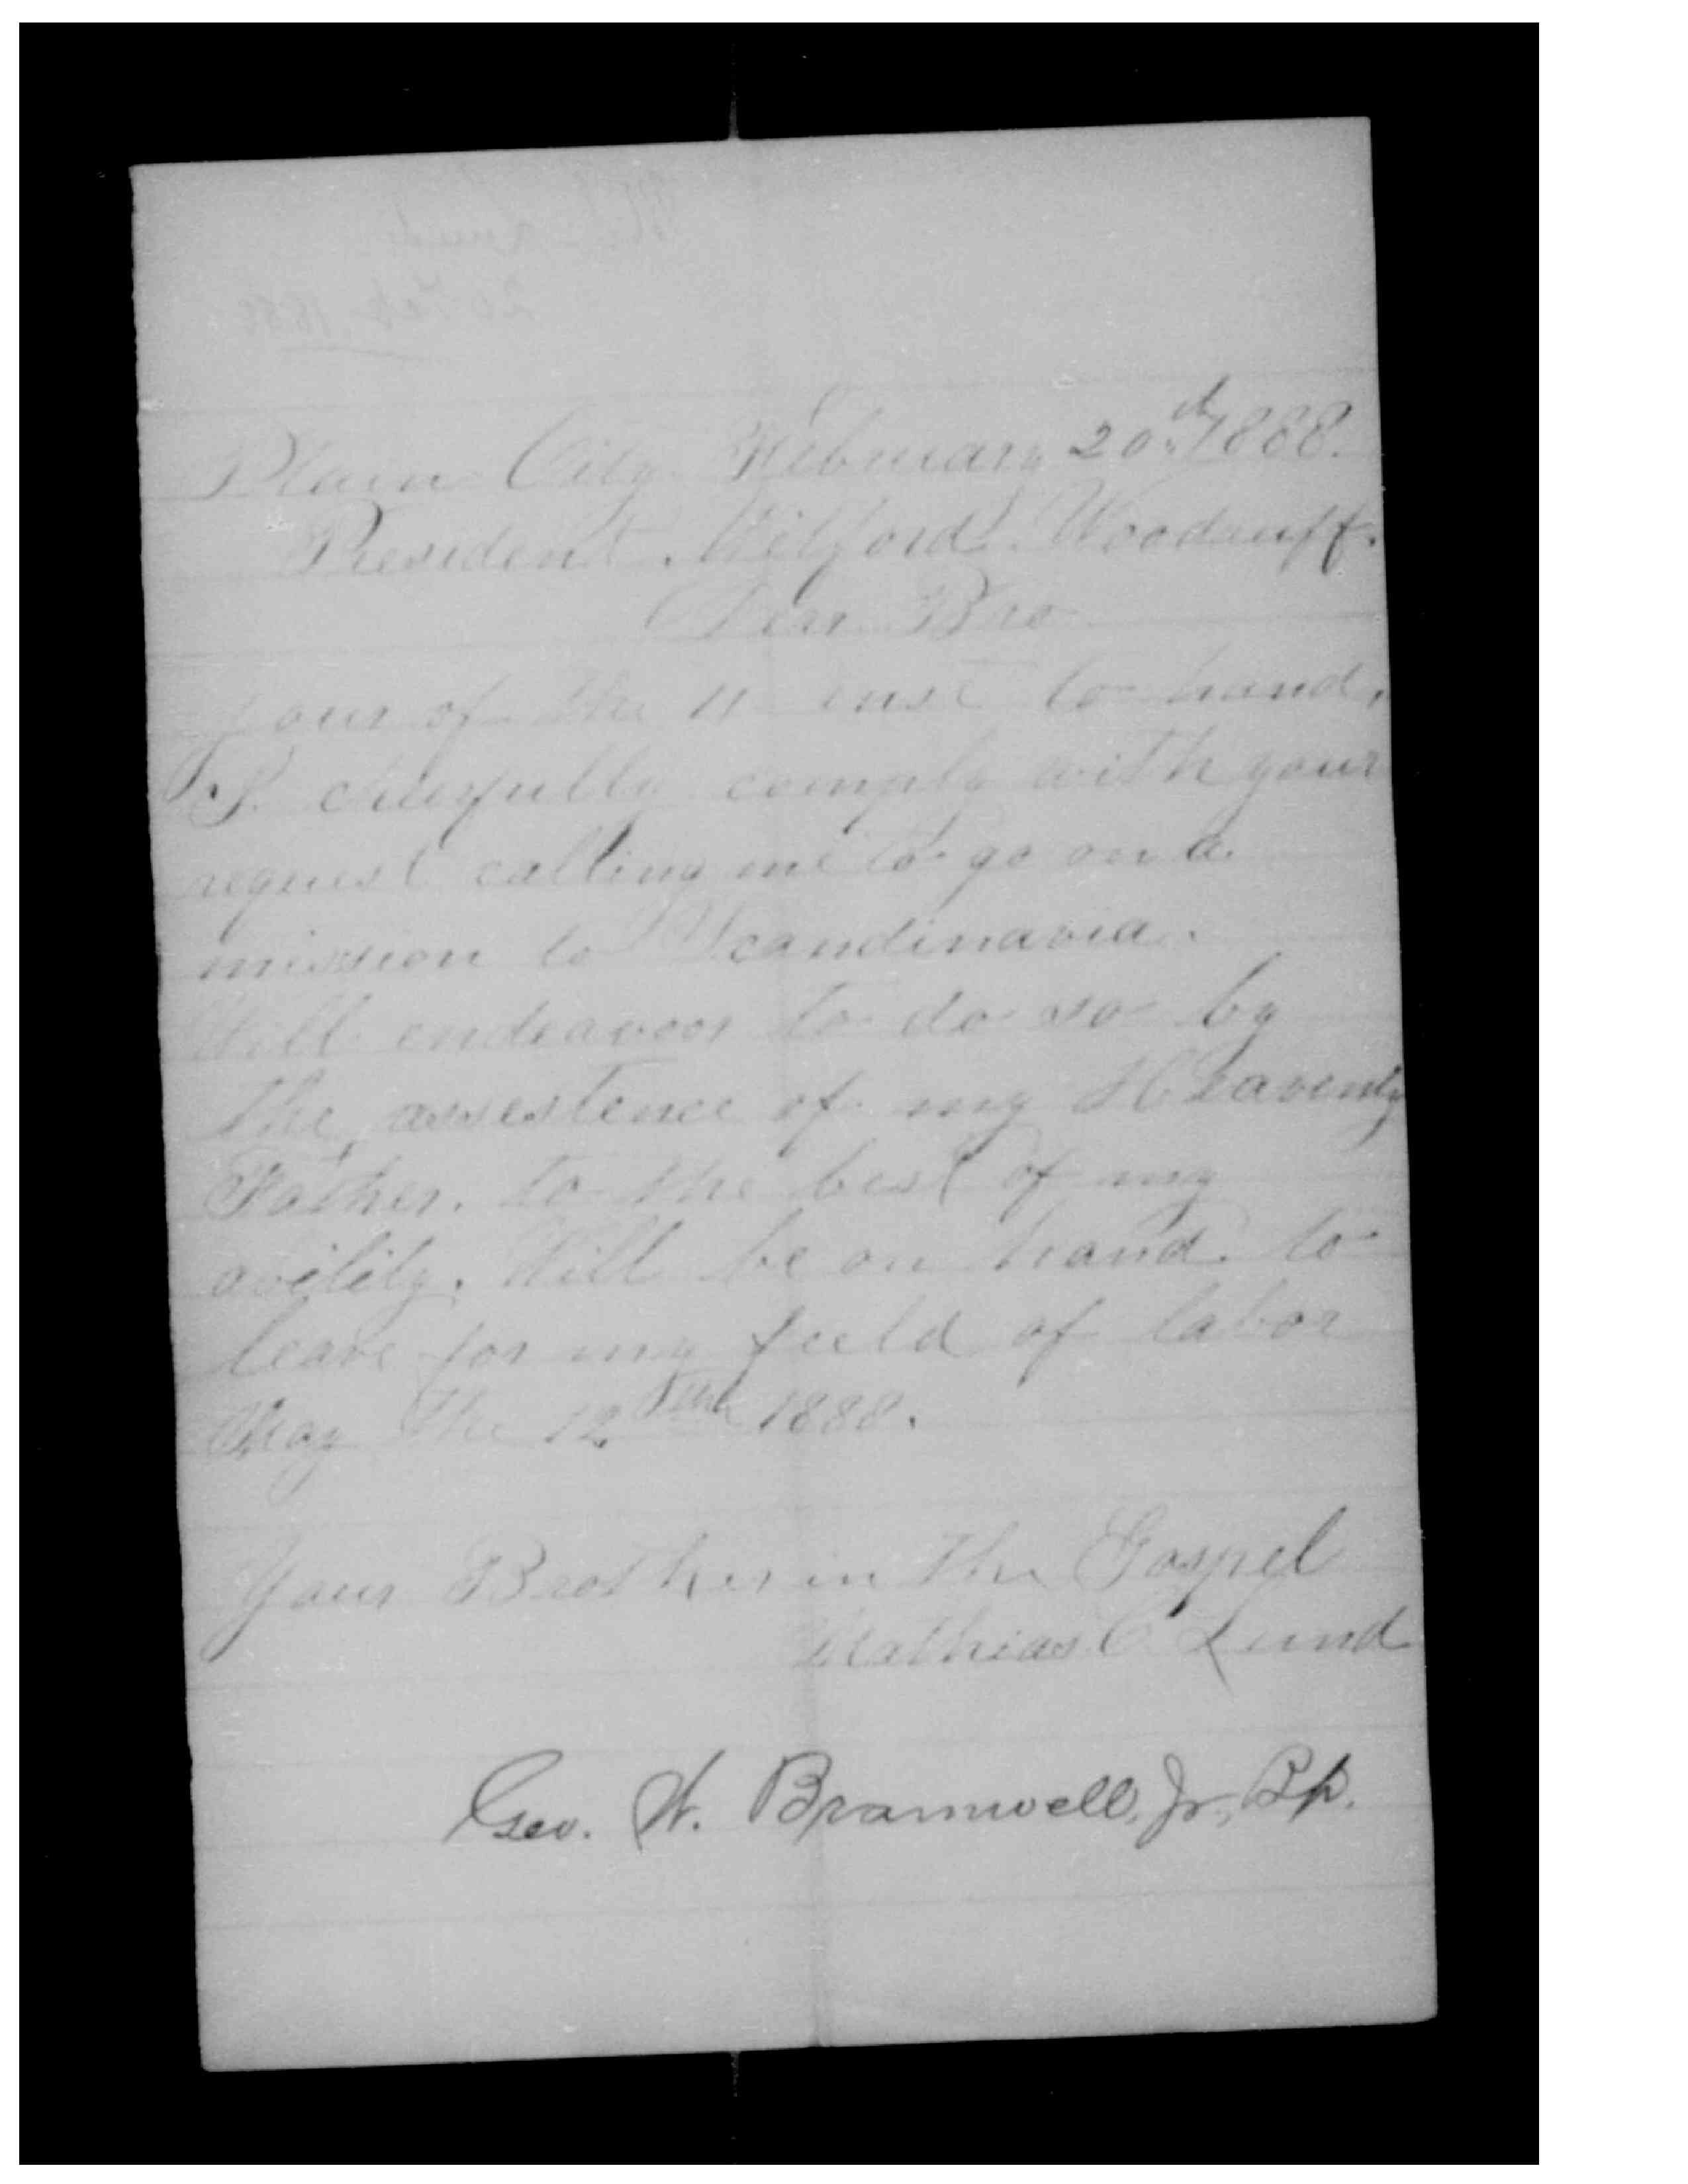 Plain City February 20th 1888.
President. Wilford. Woodruff.
Dear Bro
your of the 11 inst to hand,
I cheerfully comply with your
request calling me to go on a
mission to Scandinavia.
Will endeavoor to do so by
the assestence of my Heavenly
Father. to the best of my
avility. Will be on hand to
leave for my feeld of labor
May the 12 1888.
Your Brother in the Gospel
Mathias C Lund
Geo. W. Bramwell, Jr, Bp.